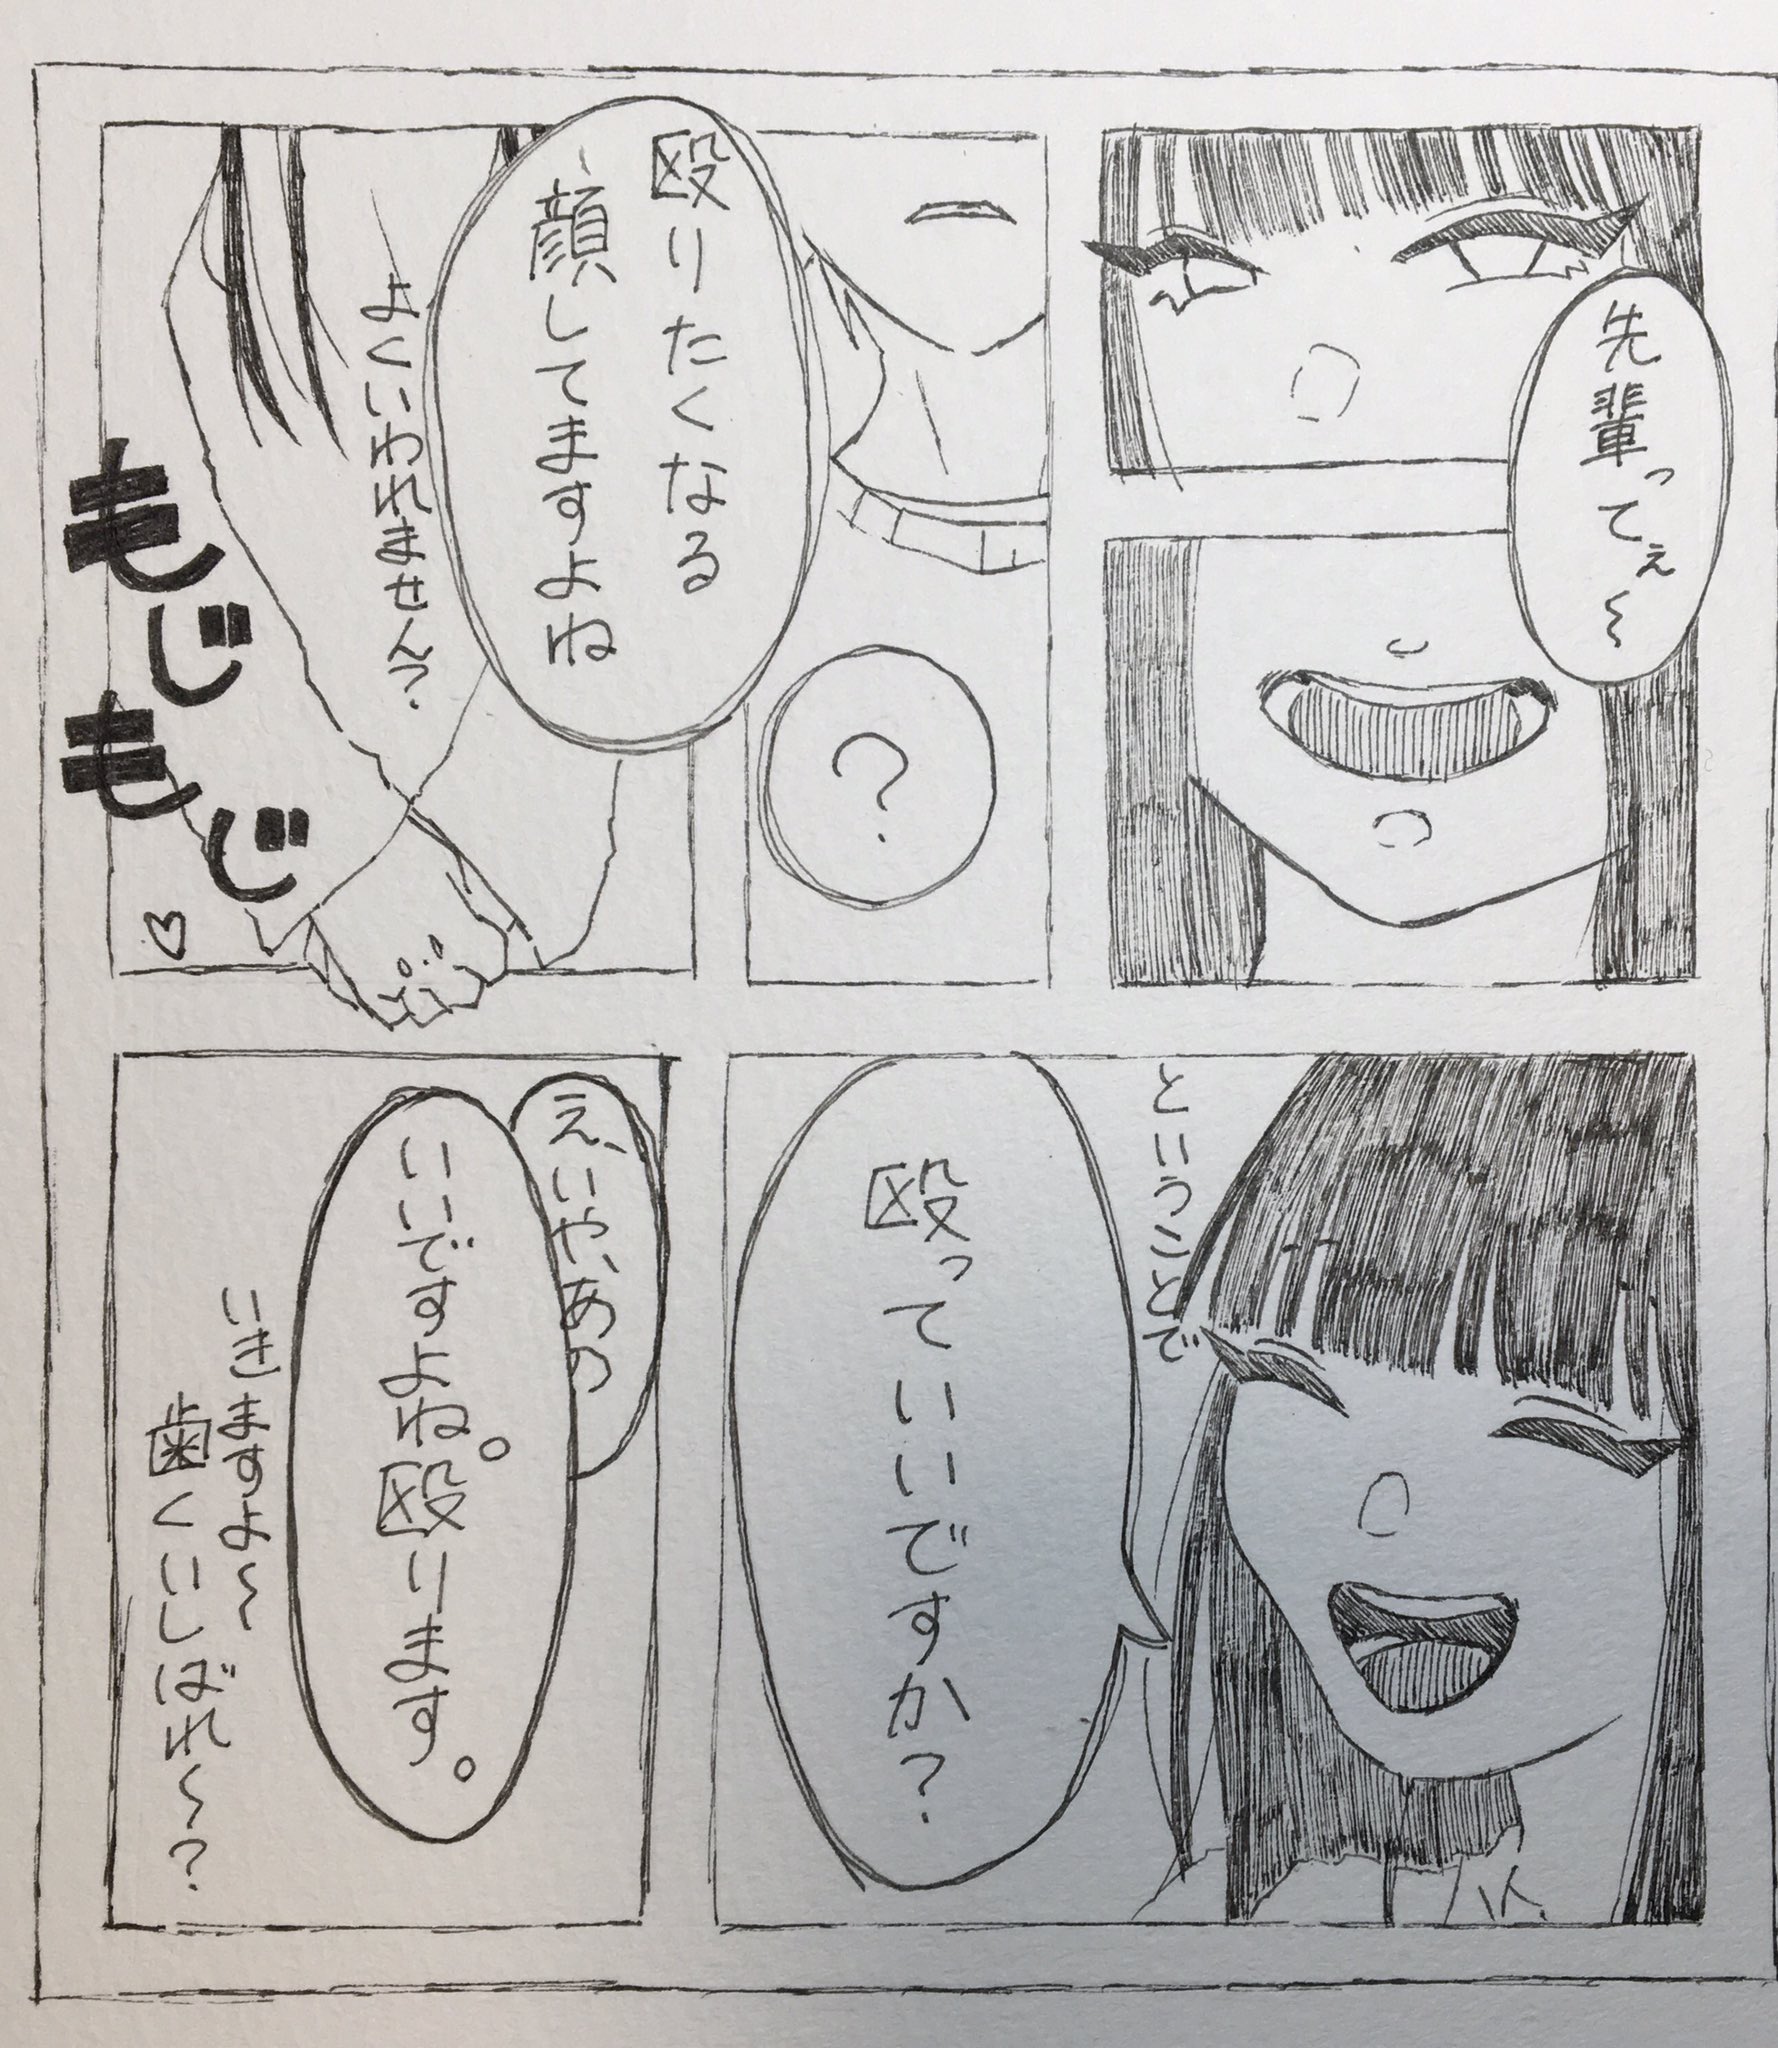 先輩ってぇ〜
？
殴りたくなる
顔してますよね
よくいわれません？
もじもじ♡
ということで
殴っていいですか？
え、いや、あの
いいですよね。殴ります。
いきますよ〜
歯くいしばれ〜？